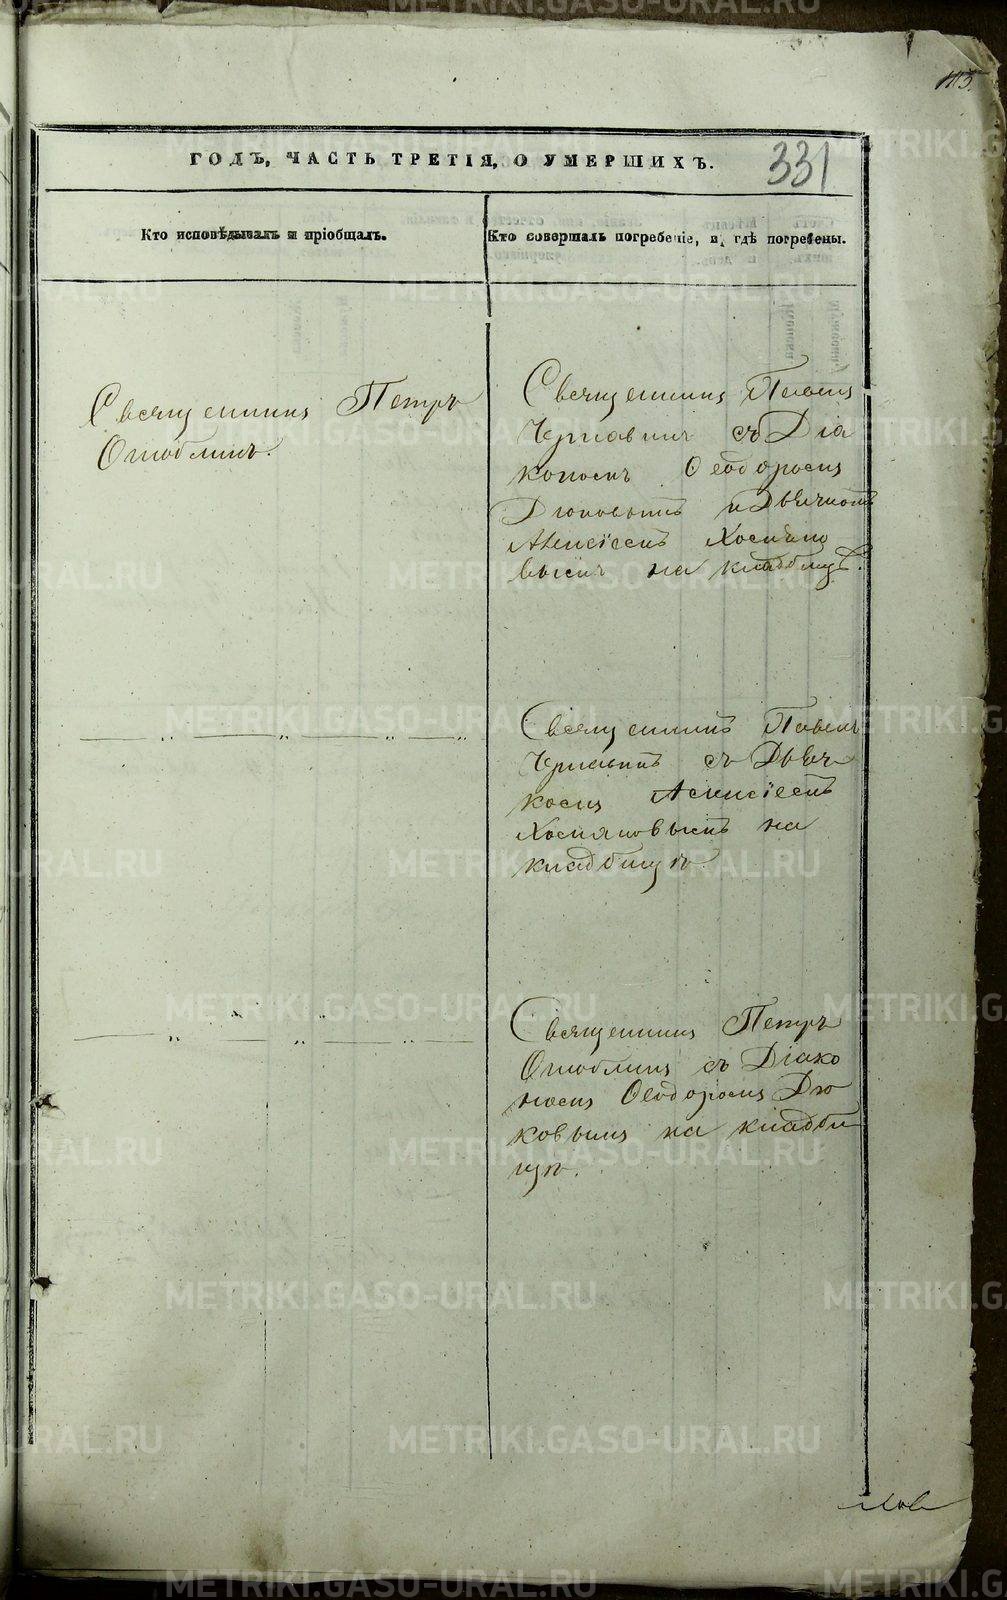 113.
ГОДЪ, ЧАСТЬ ТРЕТІЯ, О УМЕРШИХЪ.
331
Кто исповѣдывалъ и пріобщалъ.
Кто совершалъ погребеніе, и, гдѣ погребены.
Священникъ Петръ
Священникъ Павелъ
Чернавинъ съ Діа
кономъ Ѳеодоромъ
Дюковымъ и Дьячкомъ
Алексіемъ Хосняно
вымъ на кладбищѣ.
Священникъ Павелъ
Чернавинъ съ Дьяч
комъ Алексіемъ
Хосняновымъ на
кладбищѣ.
Священникъ Петръ
съ Діако
номъ Ѳеодоромъ Дю
ковымъ на кладби
щѣ.
METRIKI.GASO-URAL.RU